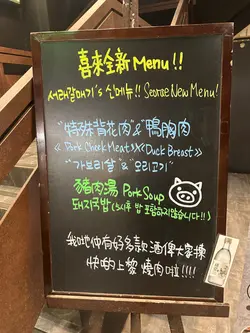 喜來全新 Menu !!
서래갈매기's 신메뉴!! Seorae New Menu!
"特殊背花肉" & "鴨胸肉"
《Pork Cheek Meat》X《Duck Breast》
"가브리살" & "오리고기"
豬肉湯 Pork Soup
돼지국밥 (5시후 밥 포함하지않습니다!!)
我哋仲有好多款酒俾大家揀
快啲上黎 燒肉啦!!!!